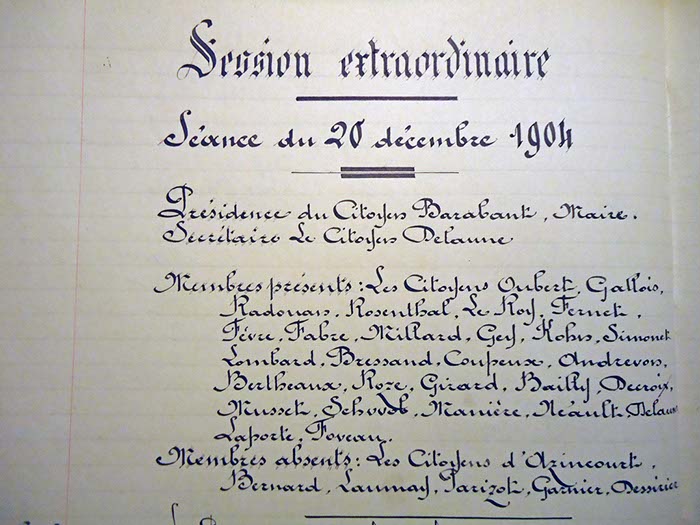 Session extraordinaire
Séance du 20 décembre 1904
Présidence du Citoyen Barabant, Maire.
Secrétaire Le Citoyen Delaune
Membres présents : Les Citoyens Oubert, Gallois,
Radouan, Rosenthal, Le Roy, Fernet,
Fèvre, Fabre, Millard, Gey, Kohn, Simonet
Lombard, Bressand, Coupeux, Andrevon,
Bertheaux, Roze, Girard, Bailly, Decroix,
Musset, Manière, Néault, Delaune
Laporte, Foveau.
Membres absents : Les Citoyens d'Azincourt,
Bernard, Launay, Parizot, Garnier, Dessirier